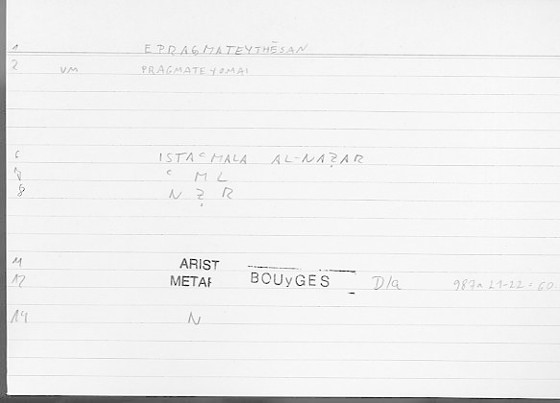 1 EPRAGMATEYTHĒSAN
2 VM PRAGMATEYOMAI
6 ISTAʿMALA AL-NAẒAR
7 ʿ M L
8 N Ẓ R
11 ARIST
12 METAF BOUyGES D/a 987a 21-22 = 60
14 N